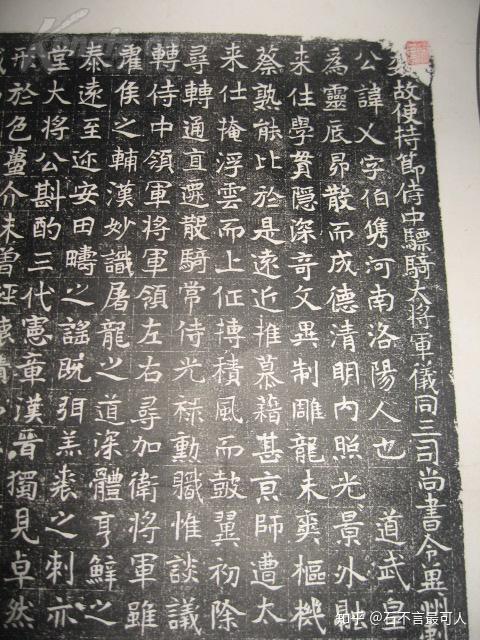 故使持節侍中驃騎大將軍儀同三司尚書令冀州刺
公諱乂字伯雋河南洛陽人也 道武皇
爲靈辰昴散而成德清明内照光景外融
来仕學貫隱深奇文異制雕龍未爽樞機
蔡孰能比於是遠近推慕藉甚京師遭太
来仕掩浮雲而上征摶積風而鼓翼初除
尋轉通直還散騎常侍光禄勳職惟談議
轉侍中領軍將軍領左右尋加衛將軍雖
濯侯之輔漢妙識屠龍之道深體亨鮮之
泰遠至迩安田疇之謡旣弭羔裘之刺亦
堂大將公斟酌三代憲章漢晉獨見卓然
形於色薑介未曽
知乎 @石不言最可人